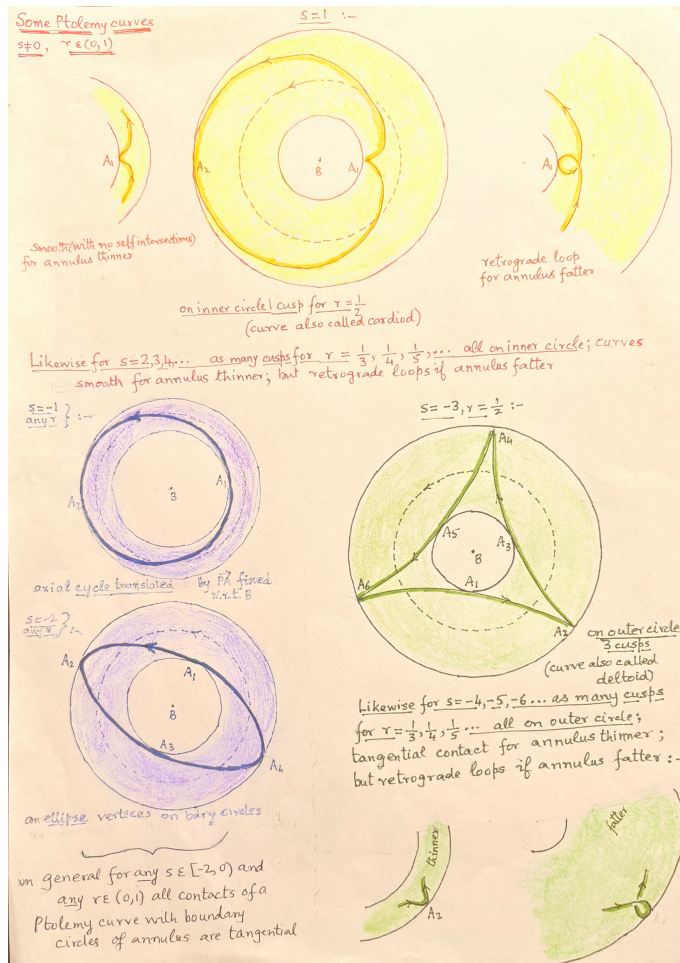 Some Ptolemy curves
s≠0, r ε (0,1)
s=1 :-
A1
A2
B
A1
A1
smooth (with no self intersections)
for annulus thinner
retrograde loop
for annulus fatter
on inner circle 1 cusp for r = 1/2
(curve also called cardiod)
Likewise for s=2,3,4... as many cusps for r = 1/3, 1/4, 1/5,... all on inner circle; curves
smooth for annulus thinner; but retrograde loops if annulus fatter
s=-1
any r } :-
A1
A2
B
axial cycle translated by PA fixed
w.r.t. B
s=-2
any r } :-
A2
A1
B
A3
A4
an ellipse vertices on bdry circles
in general for any s ε [-2,0) and
any r ε (0,1) all contacts of a
Ptolemy curve with boundary
circles of annulus are tangential
s= -3, r = 1/2 :-
A4
A5
A3
B
A1
A6
A2
on outer circle
3 cusps
(curve also called
deltoid)
Likewise for s=-4,-5,-6... as many cusps
for r = 1/3, 1/4, 1/5 ... all on outer circle;
tangential contact for annulus thinner;
but retrograde loops if annulus fatter :-
thinner
A2
fatter